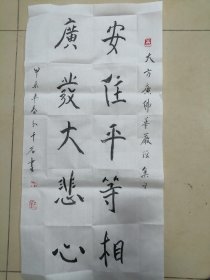 大方廣佛華嚴經集句
安住平等相
廣發大悲心
甲辰年春
千石書